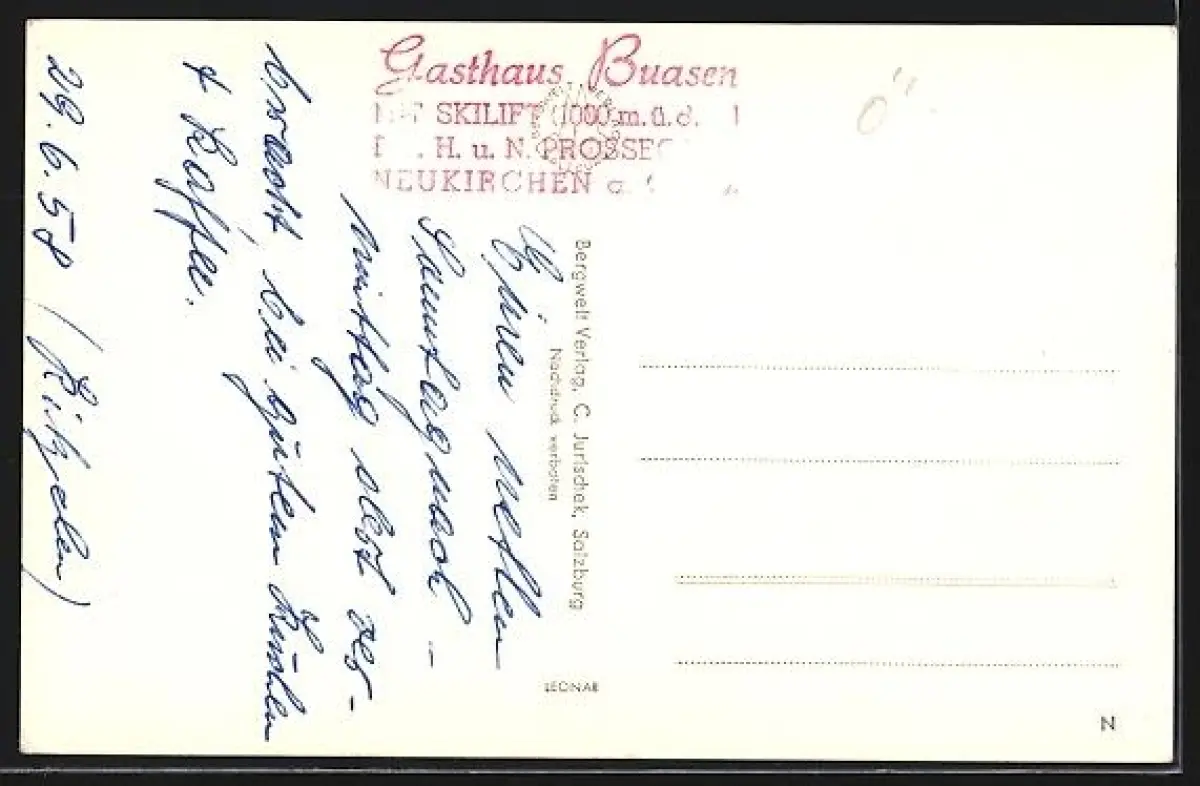 Gasthaus Buasen
MIT SKILIFT (1000 m.ü.d.
H. u. N. PROSSEG
NEUKIRCHEN a.
Bergwelt Verlag, C. Jurischek, Salzburg
Nachdruck verboten
LEONAR
N
Einen netten
Samstagnach-
mittag dort ver-
bracht bei gutem Kuchen
& Kaffee.
29.6.58